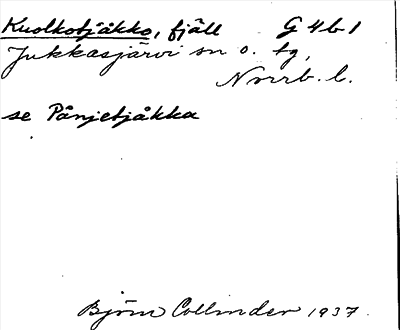 Kuolkotjåkko, fjäll G 4 b 1
Jukkasjärvi sn o. tg,
Norrb. l.
se Pånjetjåkka
Björn Collinder 1937.